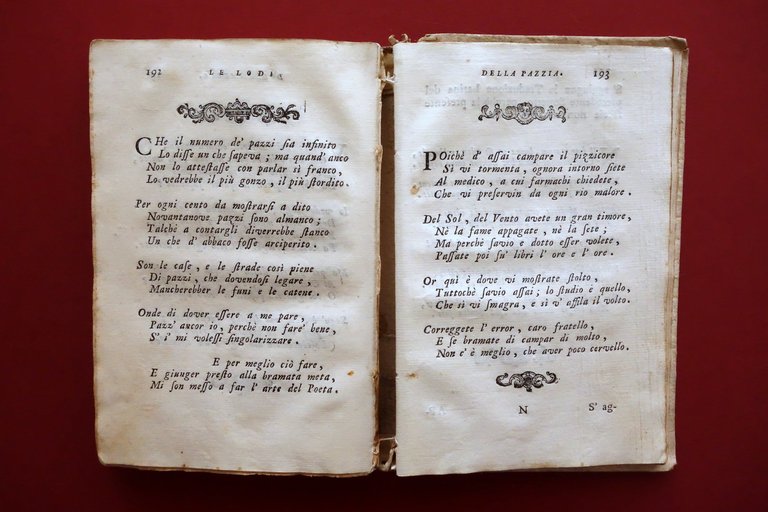 192 LE LODI
CHe il numero de' pazzi ſia infinito
Lo diſſe un che ſapeva; ma quand' anco
Non lo atteſtaſſe con parlar sì franco,
Lo vedrebbe il più gonzo, il più ſtordito.
Per ogni cento da moſtrarſi a dito
Novantanove pazzi ſono almanco;
Talchè a contargli diverrebbe ſtanco
Un che d' abbaco foſſe arciperito.
Son le caſe, e le ſtrade così piene
Di pazzi, che dovendoſi legare,
Mancherebber le funi e le catene.
Onde di dover eſſere a me pare,
Pazz' ancor io, perchè non fare' bene,
S' i' mi voleſſi ſingolarizzare.
E per meglio ciò fare,
E giunger preſto alla bramata meta,
Mi ſon meſſo a far l' arte del Poeta.
DELLA PAZZIA. 193
POichè d' aſſai campare il pizzicore
Sì vi tormenta, ognora intorno ſiete
Al medico, a cui farmachi chiedete,
Che vi preſervin da ogni rio malore.
Del Sol, del Vento avete un gran timore,
Nè la fame appagate, nè la ſete;
Ma perchè ſavio e dotto eſſer volete,
Paſſate poi ſu' libri l' ore e l' ore.
Or quì è dove vi moſtrate ſtolto,
Tuttochè ſavio aſſai; lo ſtudio è quello,
Che sì vi ſmagra, e sì v' affila il volto.
Correggete l' error, caro fratello,
E ſe bramate di campar di molto,
Non c' è meglio, che aver poco cervello.
N S' ag-